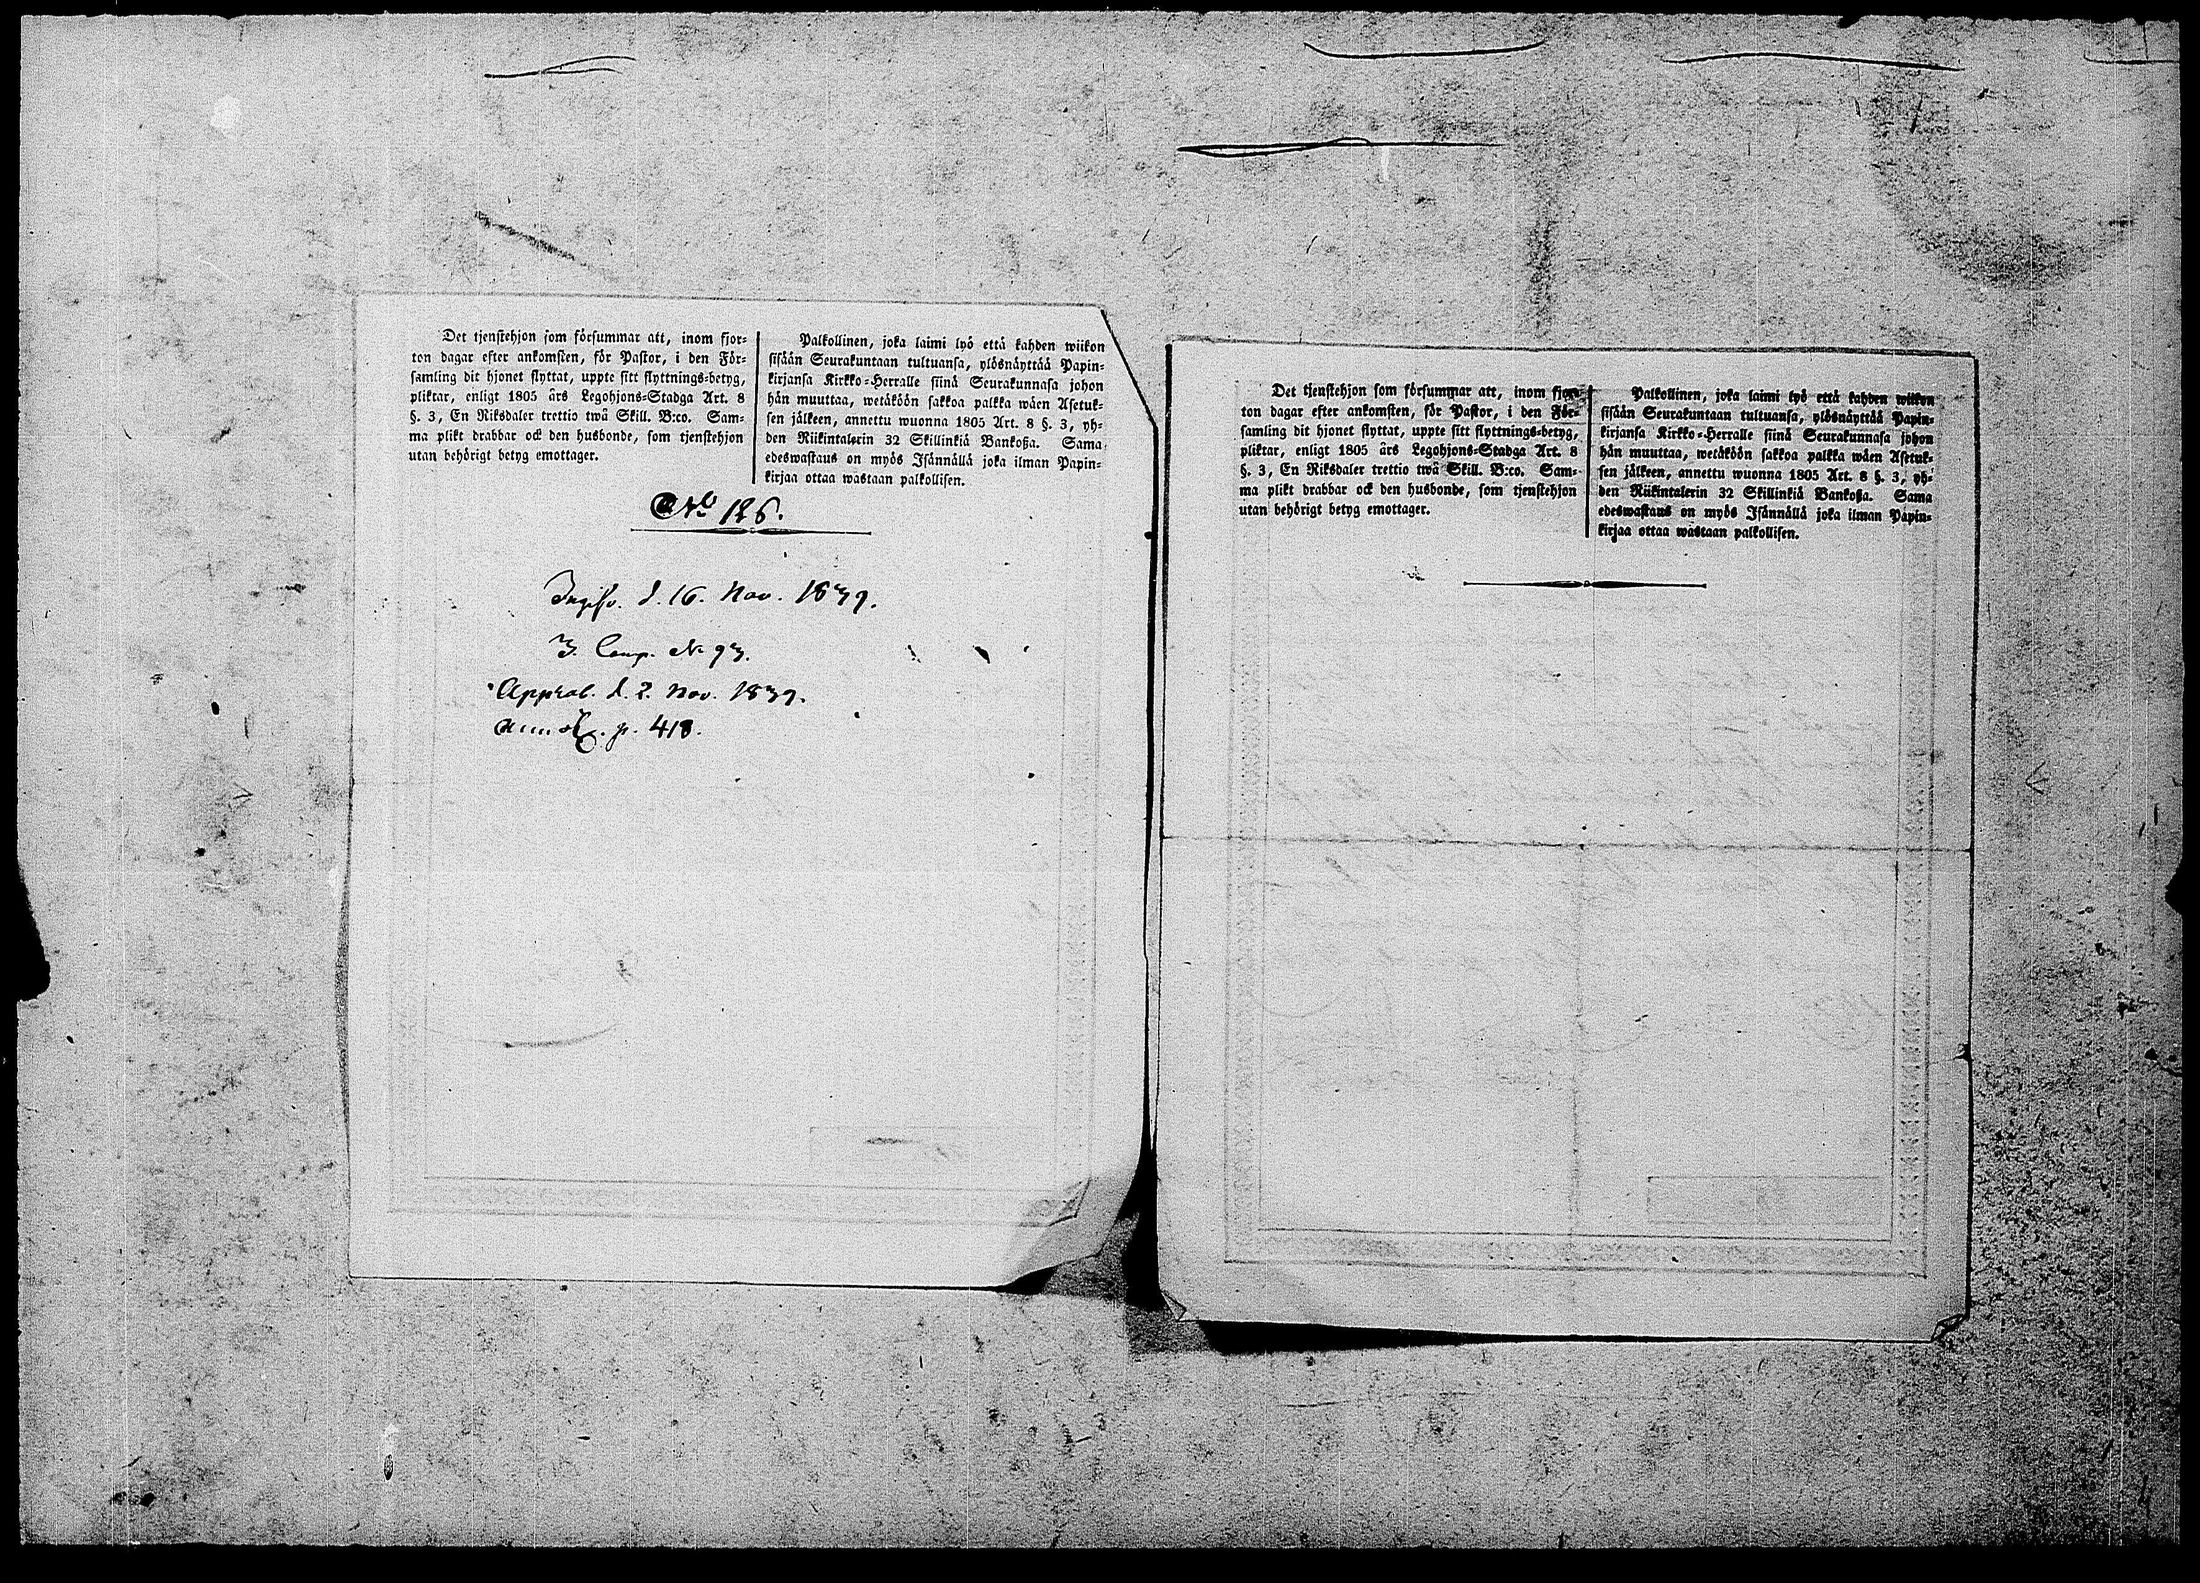 Det tjenstehjon som försummar att, inom fjor-
ton dagar efter ankomsten, för Pastor, i den För-
samling dit hjonet flyttat, uppte sitt flyttnings-betyg,
pliktar, enligt 1805 års Legohjons-Stadga Art. 8
§. 3, En Riksdaler trettio twå Skill. B:co. Sam-
ma plikt drabbar ock den husbonde, som tjenstehjon
utan behörigt betyg emottager.
Palkollinen, joka laimi lyö että kahden wiikon
sisään Seurakuntaan tultuansa, ylösnäyttää Papin-
kirjansa Kirkko-Herralle siinä Seurakunnasa johon
hän muuttaa, wetäköön sakkoa palkka wäen Asetuk-
sen jälkeen, annettu wuonna 1805 Art. 8 §. 3, yh-
den Riikintalerin 32 Skillinkiä Bankoßa. Sama
edeswastaus on myös Isännällä joka ilman Papin-
kirjaa ottaa wastaan palkollisen.
No 126.
d. 16. Nov. 1839.
3. Comp. No 93.
Approb. d. 2. Nov. 1839.
p. 418.
Det tjenstehjon som försummar att, inom fjor-
ton dagar efter ankomsten, för Pastor, i den För-
samling dit hjonet flyttat, uppte sitt flyttnings-betyg,
pliktar, enligt 1805 års Legohjons-Stadga Art. 8
§. 3, En Riksdaler trettio twå Skill. B:co. Sam-
ma plikt drabbar ock den husbonde, som tjenstehjon
utan behörigt betyg emottager.
Palkollinen, joka laimi lyö että kahden wiikon
sisään Seurakuntaan tultuansa, ylösnäyttää Papin-
kirjansa Kirkko-Herralle siinä Seurakunnasa johon
hän muuttaa, wetäköön sakkoa palkka wäen Asetuk-
sen jälkeen, annettu wuonna 1805 Art. 8 §. 3, yh-
den Riikintalerin 32 Skillinkiä Bankoßa. Sama
edeswastaus on myös Isännällä joka ilman Papin-
kirjaa ottaa wastaan palkollisen.